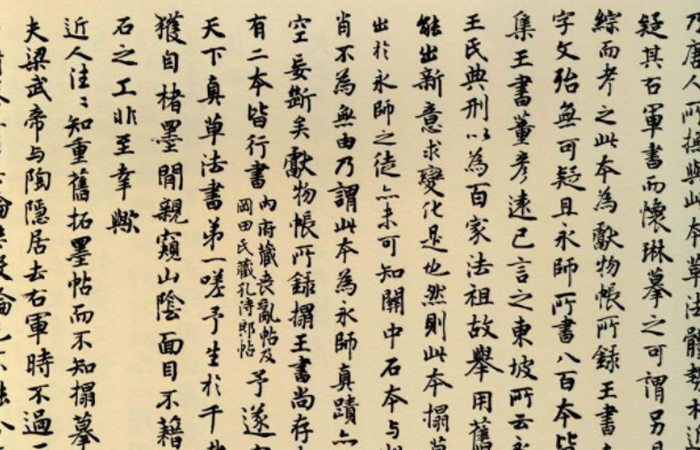 乃唐人所摸與此本草法體勢相近
疑其右軍書而懷琳摹之可謂另具
綜而考之此本為獻物帳所錄王書
字文殆無可疑且永師所書八百本皆
集王書董彥遠已言之東坡所云
王氏典刑以為百家法祖故舉用舊
能出新意求變化是也然則此本搨摹
出於永師之徒亦未可知關中石本与
肖不為無由乃謂此本為永師真蹟亦
空妄斷矣獻物帳所錄搨王書尚存
有二本皆行書內府藏喪亂帖及岡田氏藏孔侍郎帖予遂
天下真草法書第一嗟予生於千
獲自楮墨間親窺山陰面目不藉
石之工非至幸歟
近人注〻知重舊拓墨帖而不知搨摹
夫梁武帝与陶隱居去右軍時不過